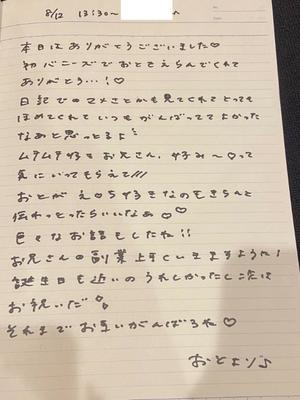 8/12 13:30〜
本日はありがとうございました♡
初バニーズでおとさえらんでくれて
ありがとう…!♡
日記びのマメさとかも見てくれてとっても
ほめてくれていつもがんばっててよかった
なあと思っとるよ
ムチムチ好きお兄さん、好み〜♡って
気にいってもらえて///
おとがえ○ち好きなのもきちんと
伝わっとったらいいなぁ♡♡
色々なお話もしたね!!
お兄さんの副業上手くいきますように!
誕生日も近いのうれしかったし次は
お祝いだ
それまでお互いがんばろね♡
おとより♪